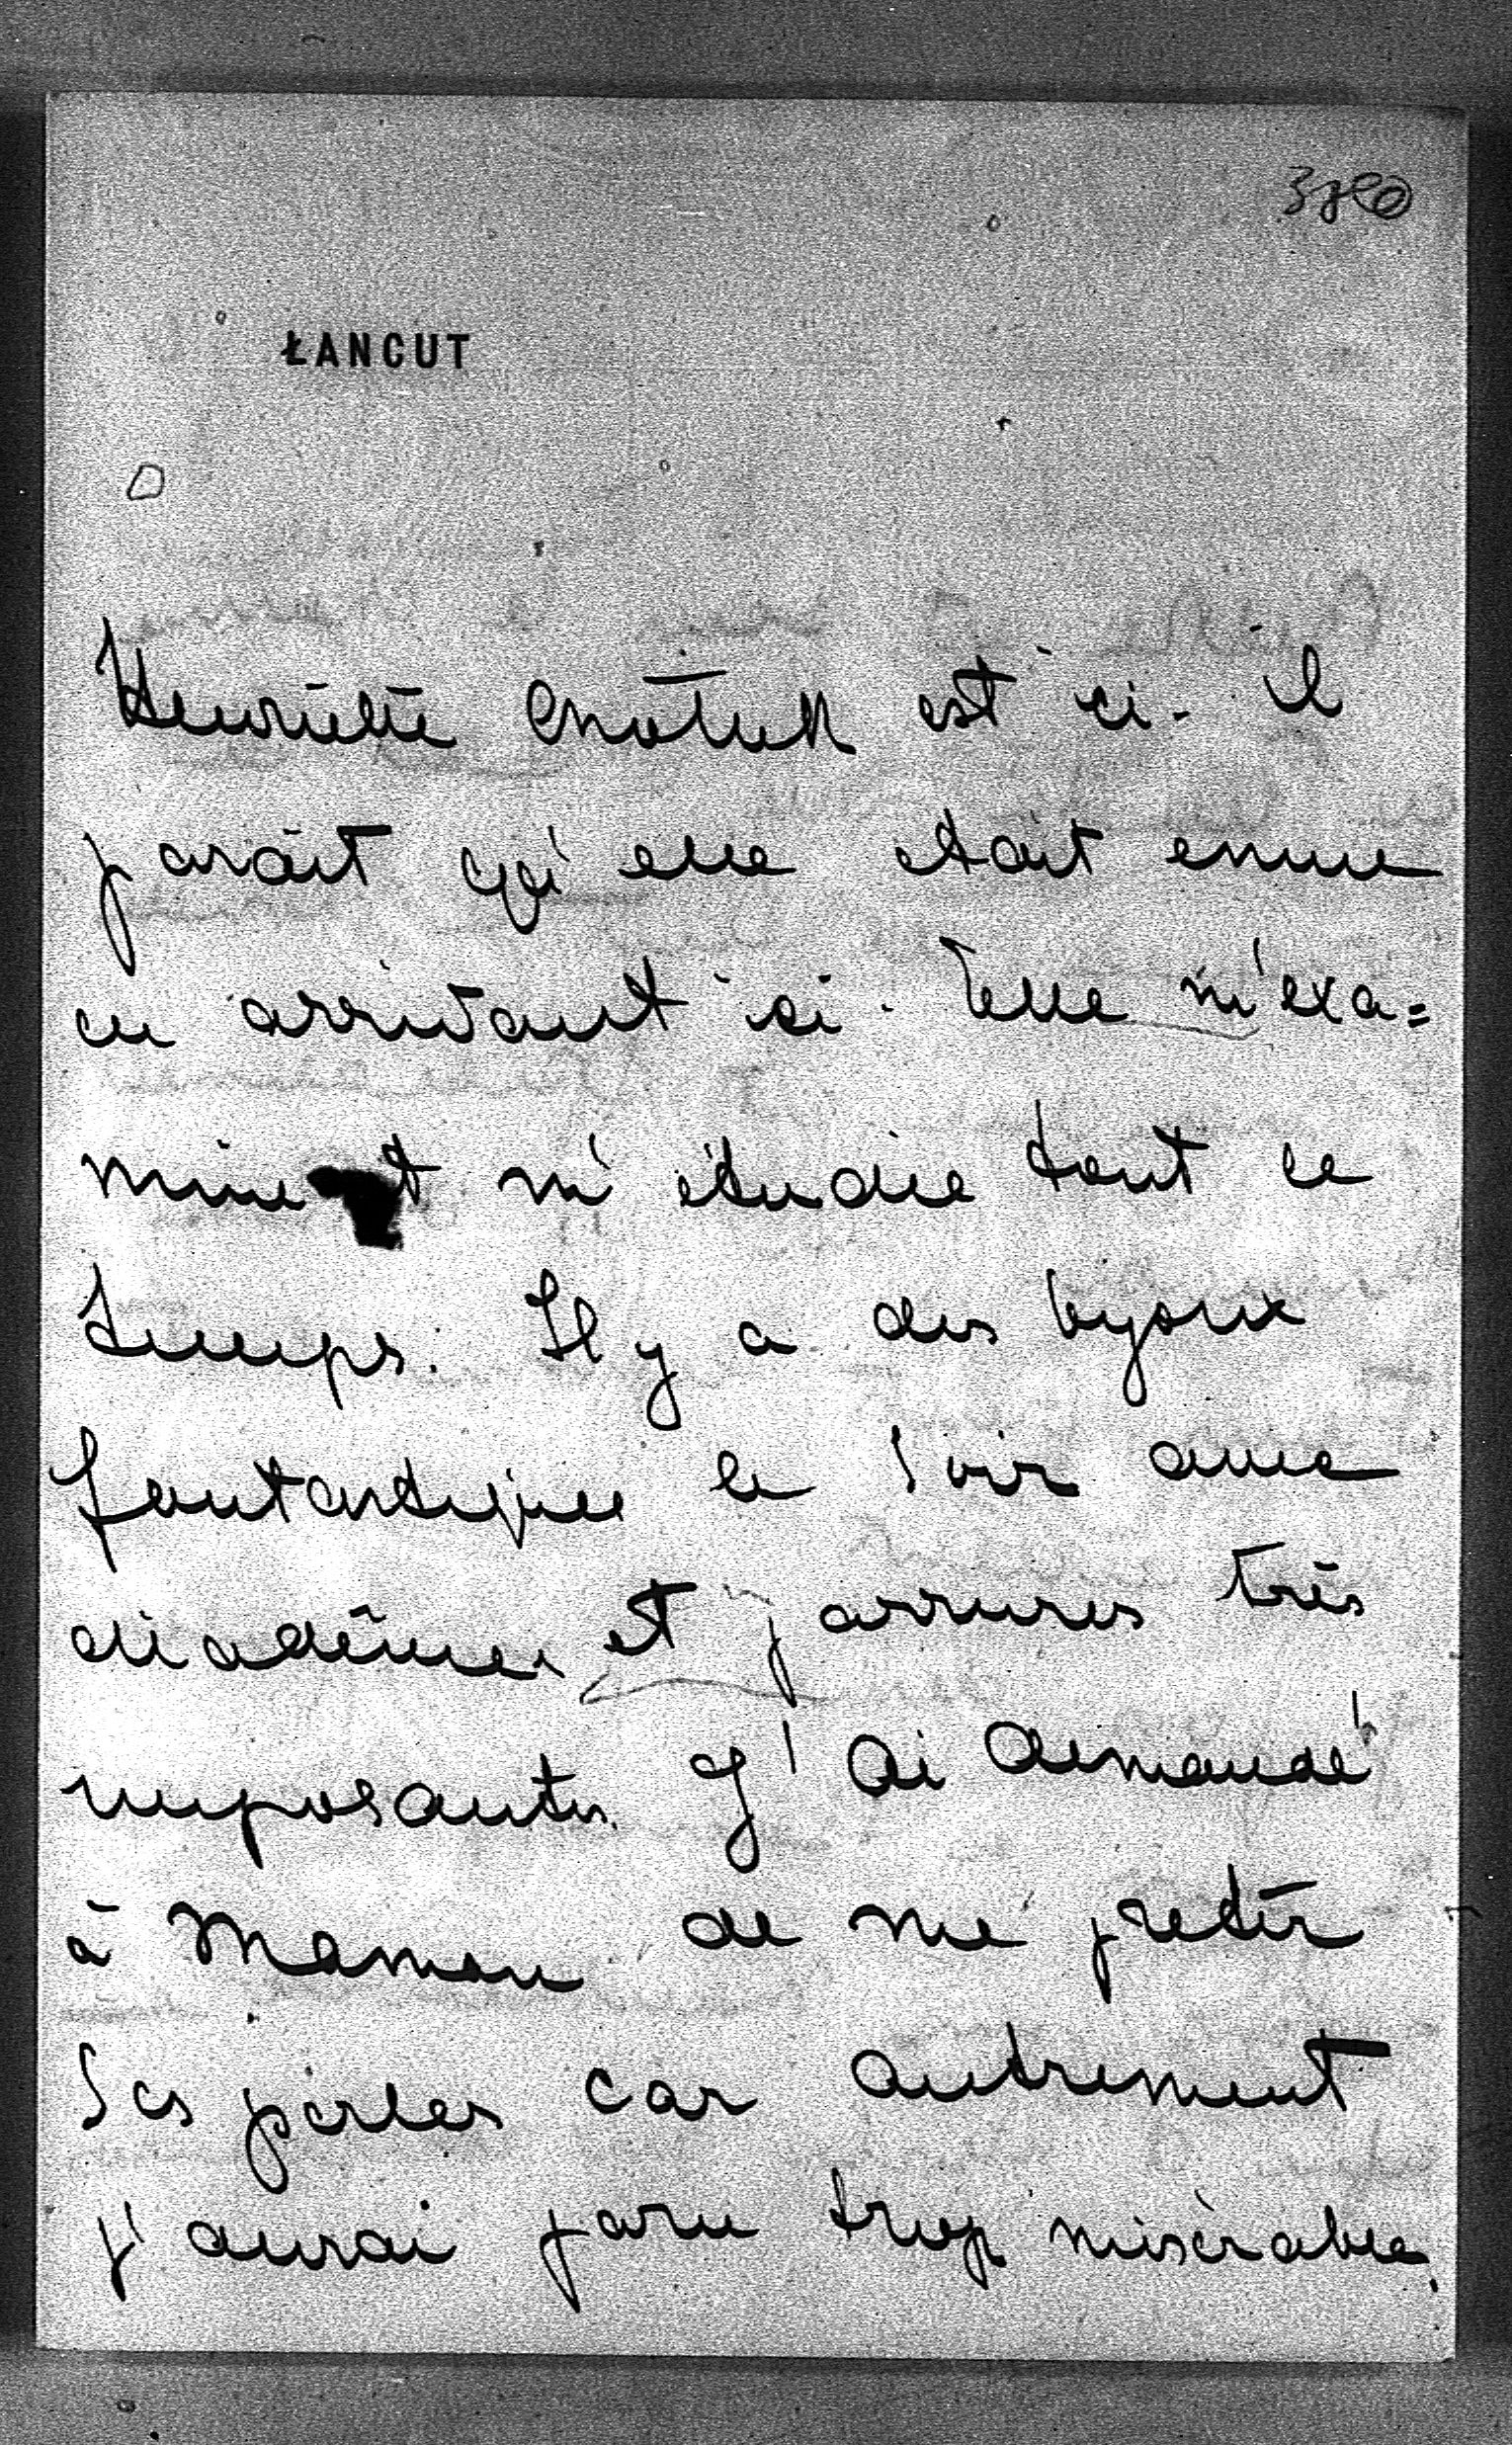 ŁANCUT
Henriette Chotek est ici. il
parait qu'elle était emue
en arrivant ici. Elle m'exa=
mine et m'étudie tout le
temps. Il y a des bijoux
fantastiques le soir avec
diadêmes et parrures très
imposantes. J'ai demandé
à Maman de me preter
ses perles car autrement
j'aurai paru trop misèrable.